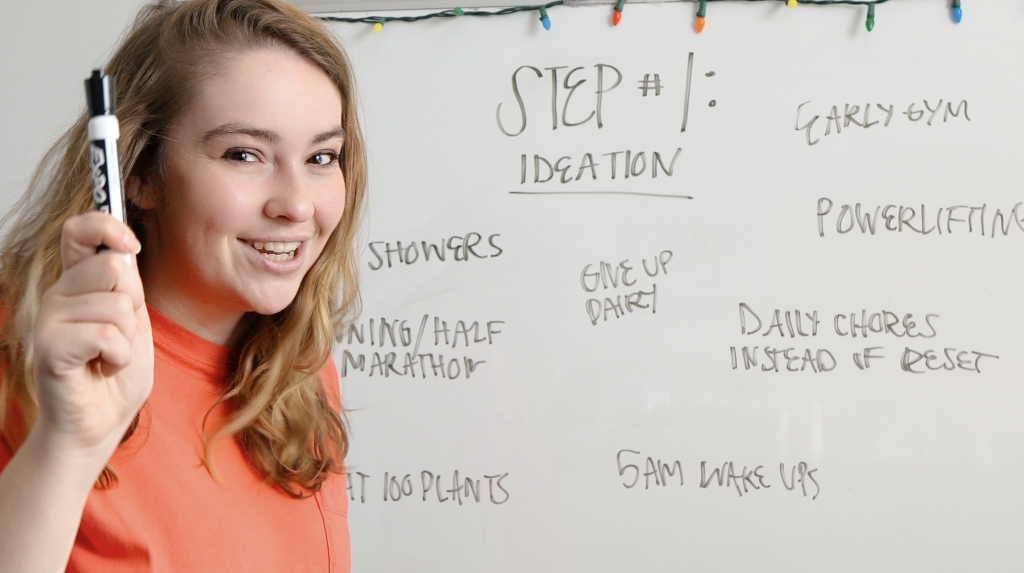 STEP #1:
IDEATION
EARLY GYM
POWERLIFTING
SHOWERS
GIVE UP
DAIRY
NING/HALF
MARATHON
DAILY CHORES
INSTEAD OF RESET
AT 100 PLANTS
5AM WAKE UPS
EXPO